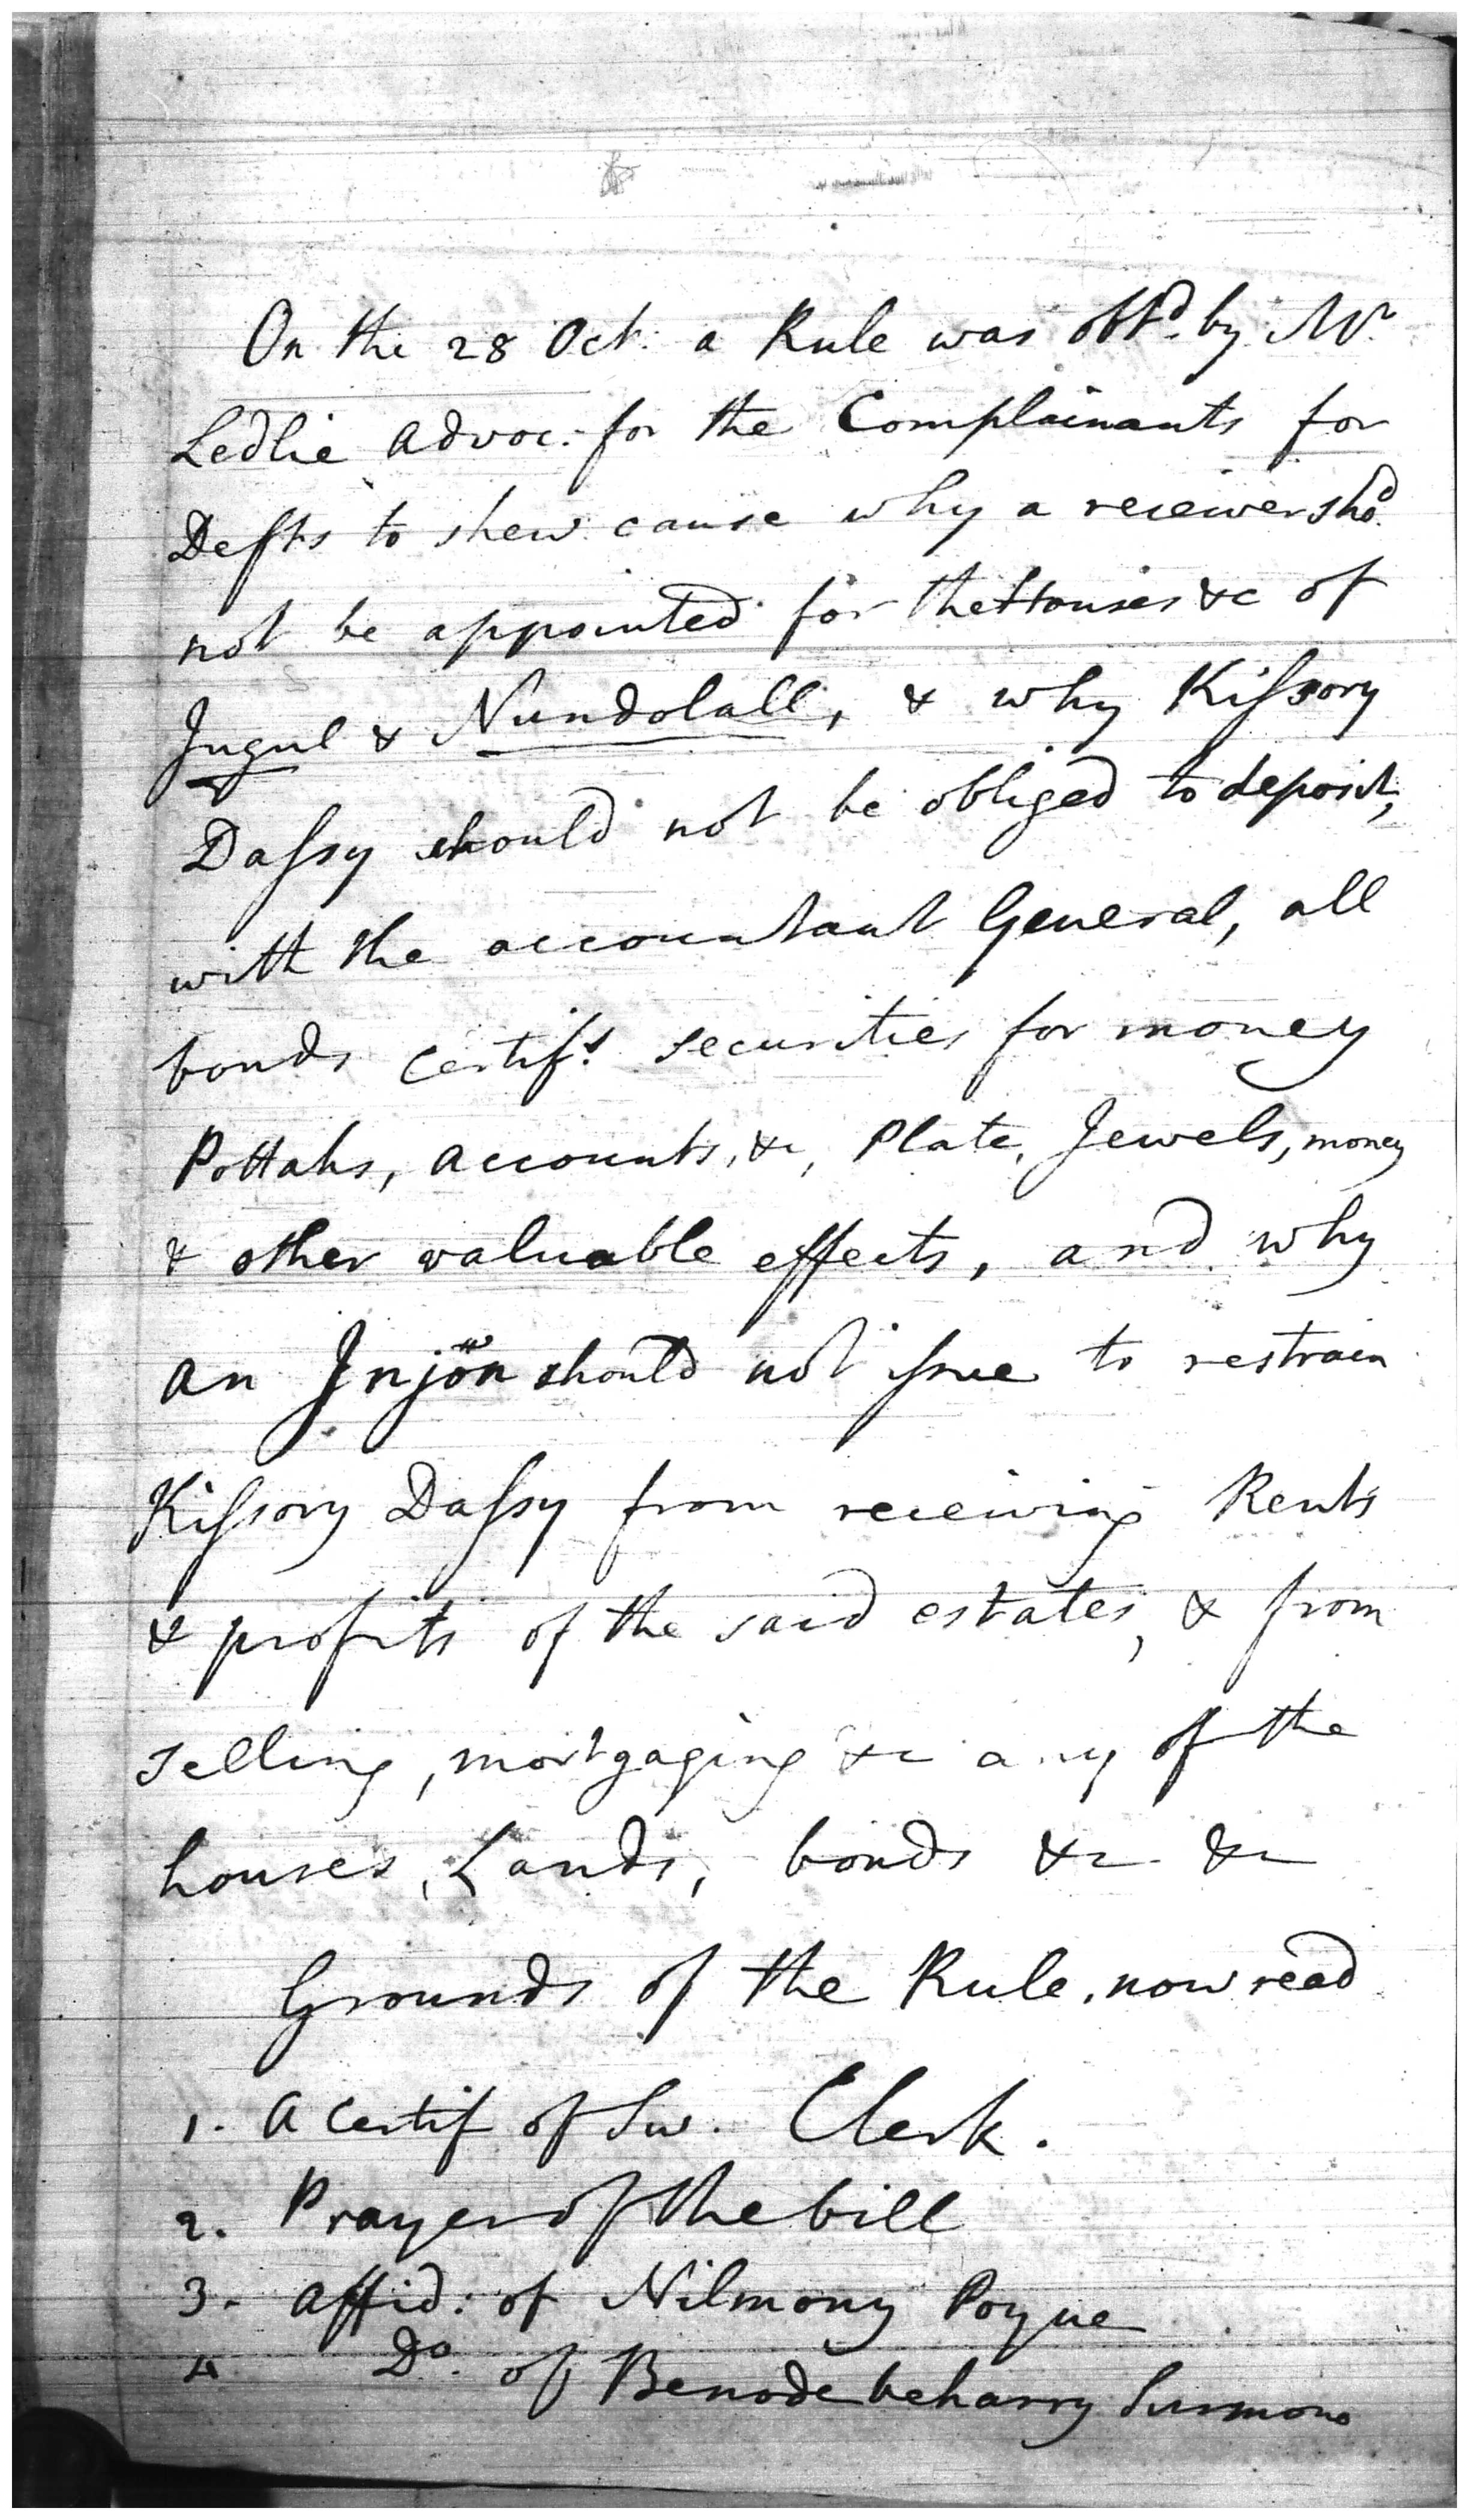 On the 28 Oct: a Rule was obtd. by Mr.
Ledlie Advoc: for the Complainants for
Defts to shew cause why a receiver shod.
not be appointed for the Houses &c of
Jugul & Nundolall, & why Kissory
Dassy should not be obliged to deposit,
with the accountant General, all
bonds certifs. securities for money
Pottahs, accounts, &c, Plate, Jewels, money
& other valuable effects, and why
an Injon should not issue to restrain
Kissory Dassy from receiving Rents
& profits of the said estates, & from
selling, mortgaging &c any of the
houses, Lands, bonds &c &c
Grounds of the Rule, now read
1. A Certif of Sw. Clerk.
2. Prayer of the bill
3. Affid: of Nilmony Poyne
4 Do. of Benodebeharry Surmono